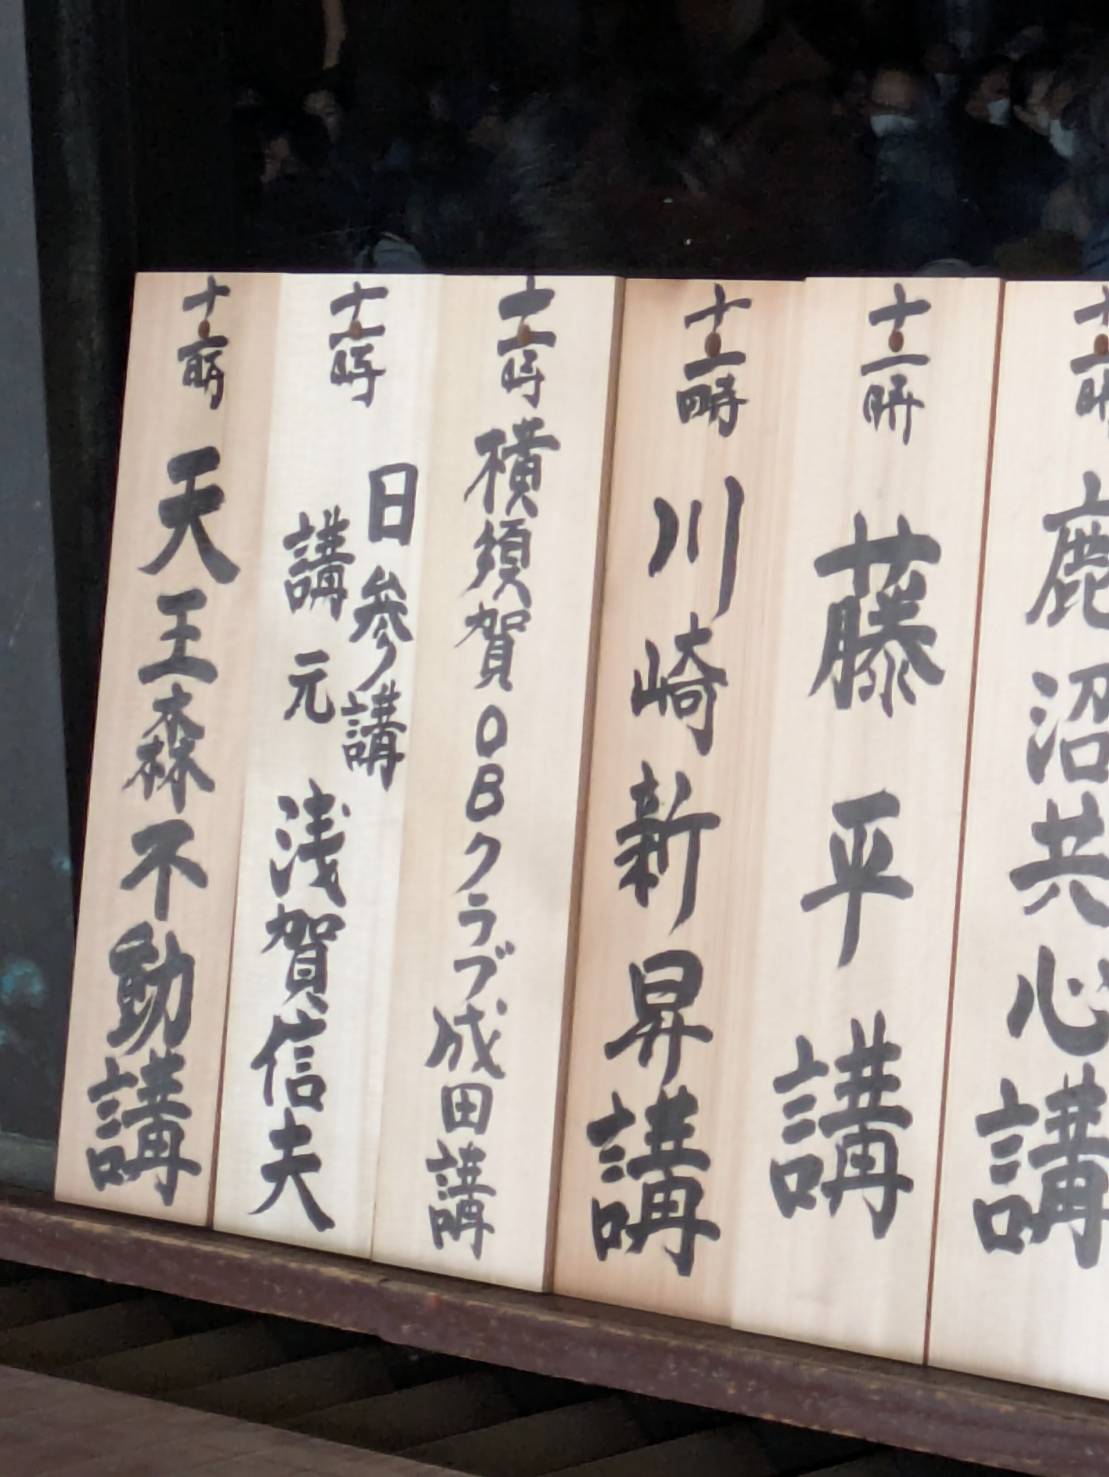 十一時 鹿沼共心講
十一時 藤平講
十一時 川崎新昇講
十一時 横須賀OBクラブ成田講
十一時 日参講
講元 浅賀信夫
十一時 天王森不動講